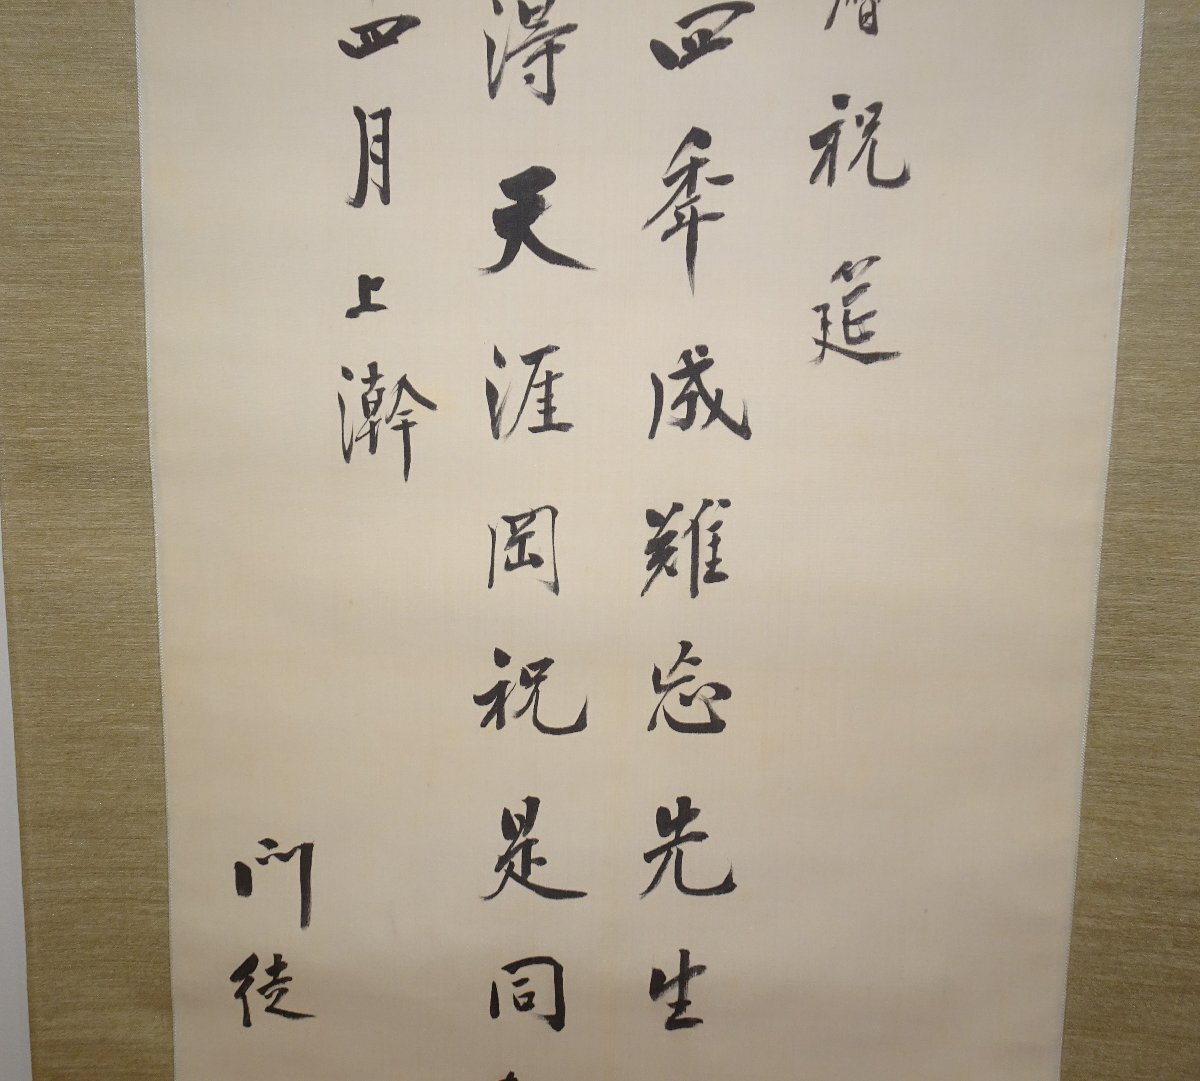 暦祝筵
四秊成難忘先生
得天涯岡祝是同
四月上澣
門徒